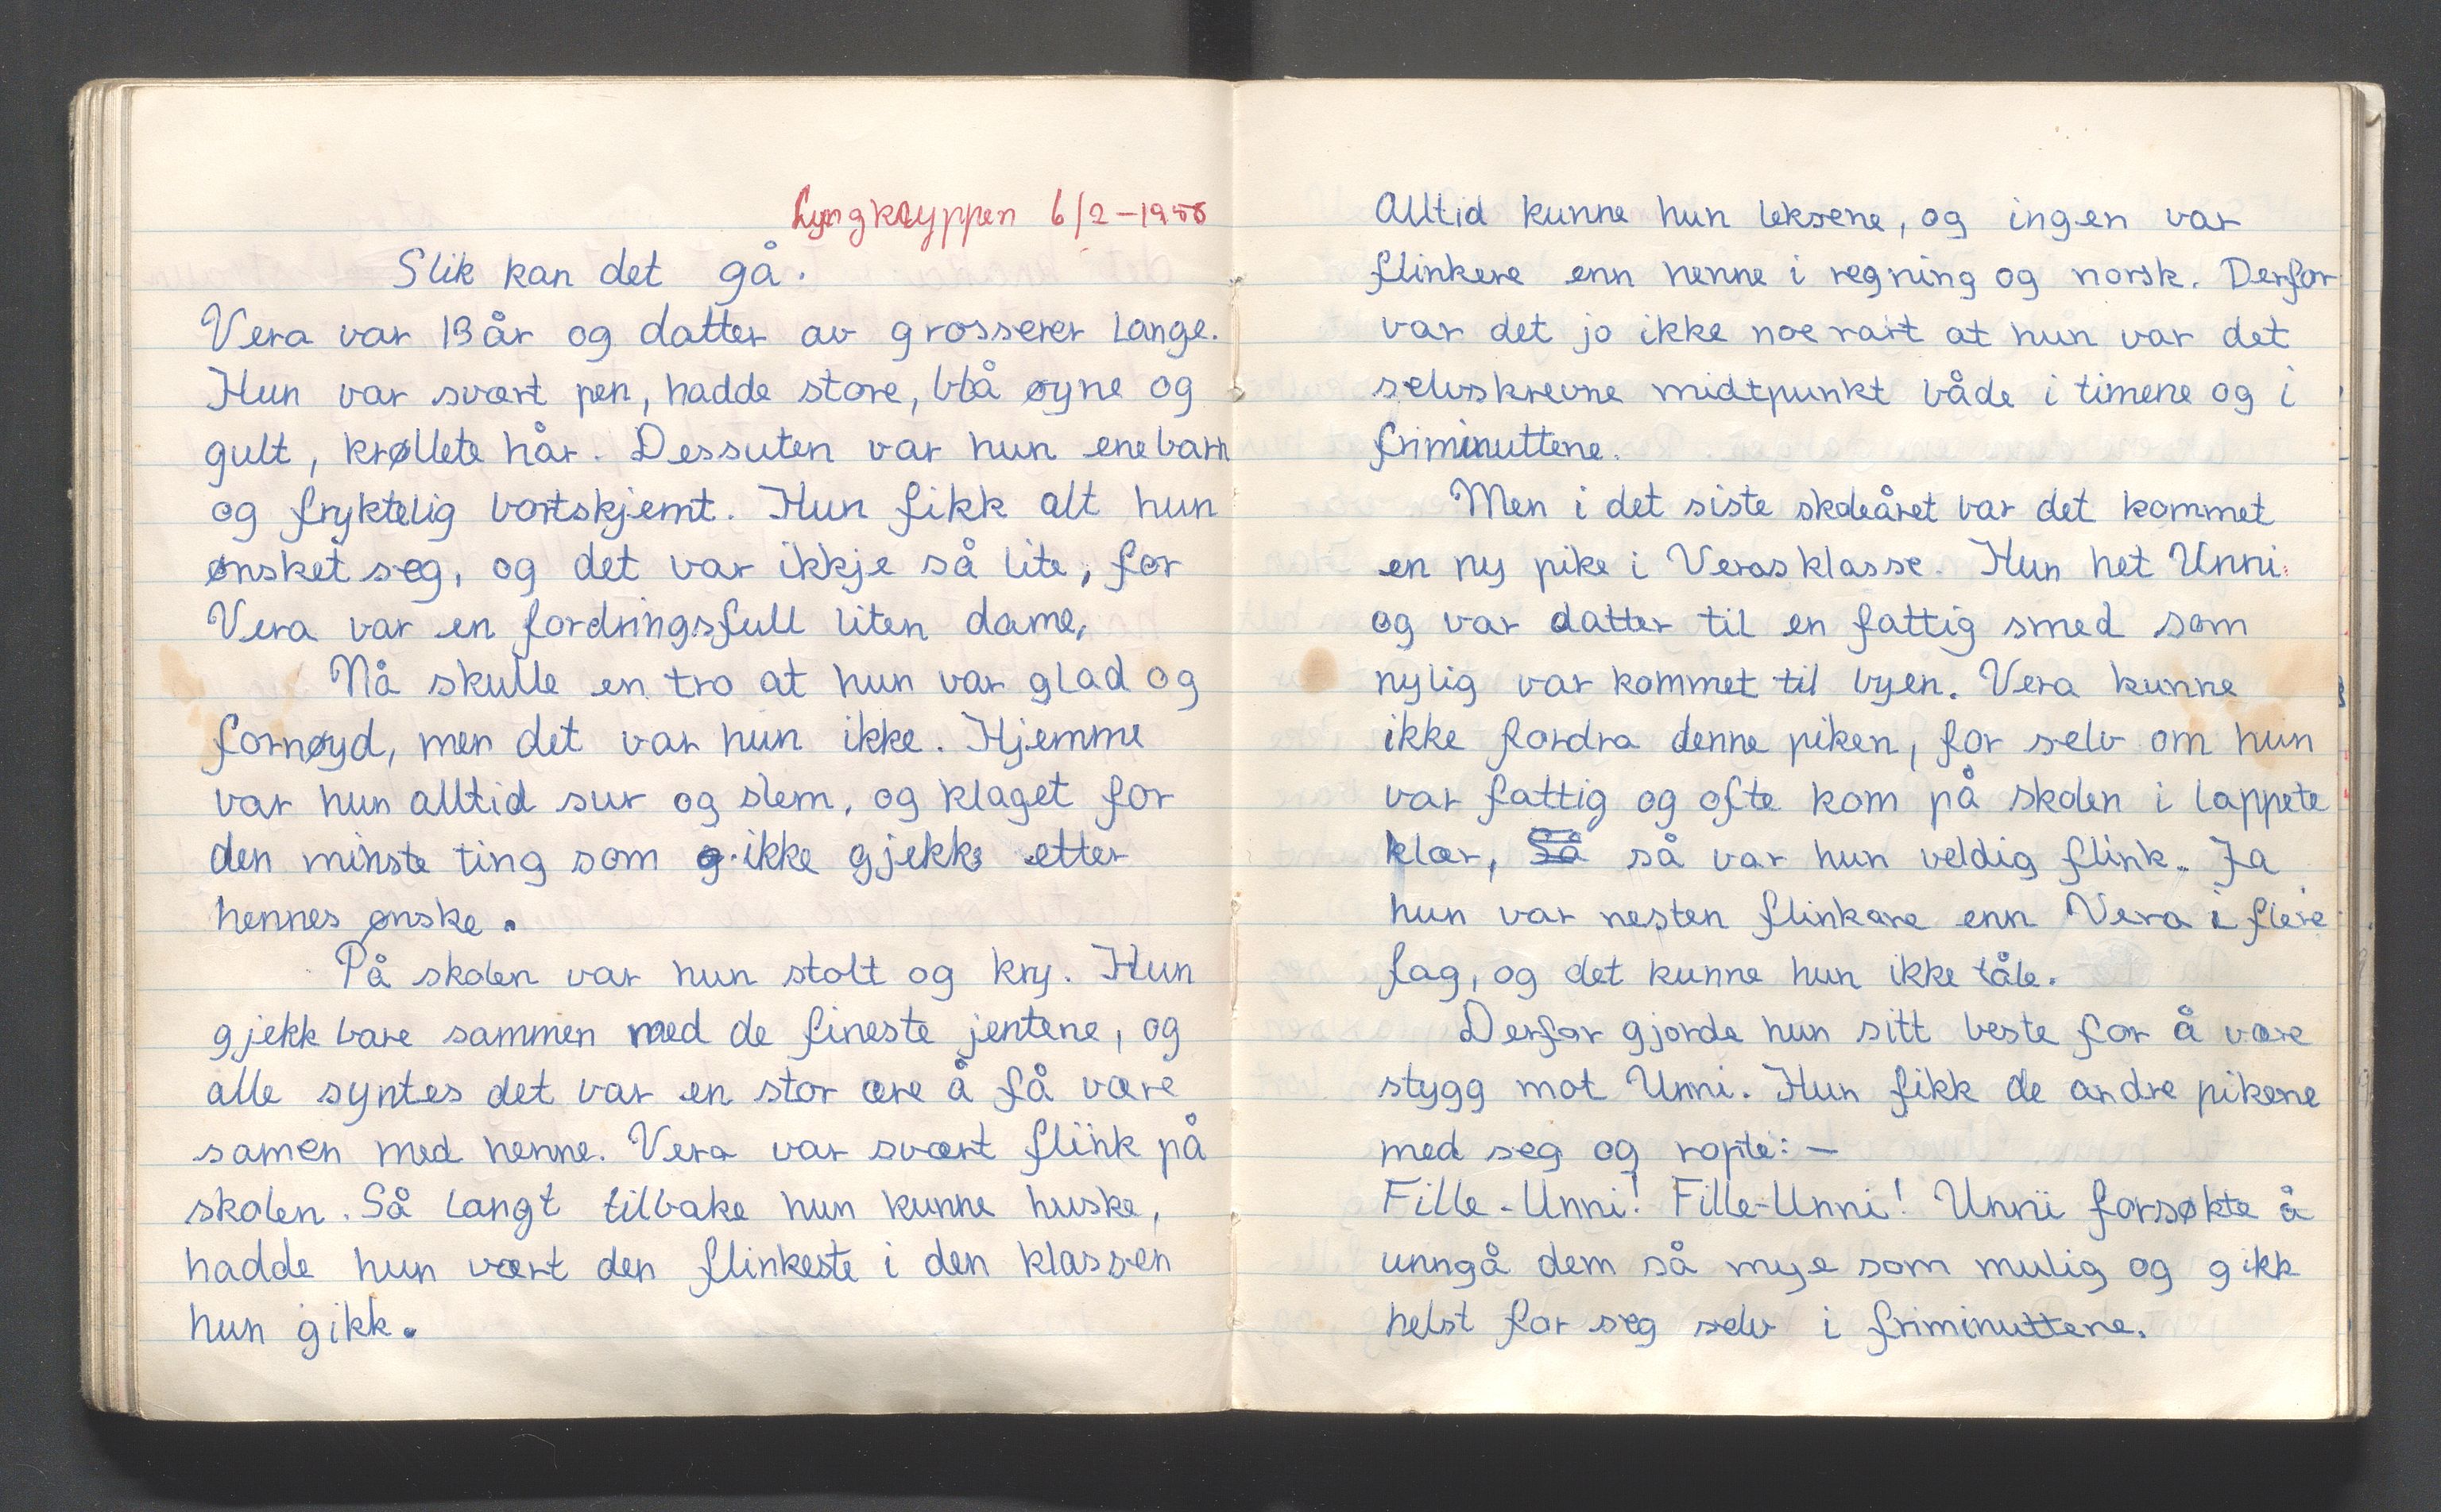 Lyngkryppen 6/2-1955
Slik kan det gå.
Vera var 13 år og datter av grosserer Lange.
Hun var svært pen, hadde store, blå øyne og
gult, krøllete hår. Dessuten var hun enebarn
og fryktelig bortskjemt. Hun fikk alt hun
ønsket seg, og det var ikkje så lite, for
Vera var en fordringsfull liten dame,
Nå skulle en tro at hun var glad og
fornøyd, men det var hun ikke. Hjemme
var hun alltid sur og slem, og klaget for
den minste ting som ikke gjekk etter
hennes ønske.
På skolen var hun stolt og kry. Hun
gjekk bare sammen med de fineste jentene, og
alle syntes det var en stor ære å få være
samen med henne. Vera var svært flink på
skolen. Så langt tilbake hun kunne huske,
hadde hun vært den flinkeste i den klassen
hun gikk.
Alltid kunne hun leksene, og ingen var
flinkere enn henne i regning og norsk. Derfor
var det jo ikke noe rart at hun var det
selvskrevne midtpunkt både i timene og i
friminuttene.
Men i det siste skoleåret var det kommet
en ny pike i Veras klasse. Hun het Unni
og var datter til en fattig smed som
nylig var kommet til byen. Vera kunne
ikke fordra denne piken, for selv om hun
var fattig og ofte kom på skolen i lappete
klær, Så så var hun veldig flink. Ja
hun var nesten flinkare enn Vera i flere
fag, og det kunne hun ikke tåle.
Derfor gjorde hun sitt beste for å være
stygg mot Unni. Hun fikk de andre pikene
med seg og ropte: -
Fille-Unni! Fille-Unni! Unni forsøkte å
unngå dem så mye som mulig og gikk
helst for seg selv i friminuttene.